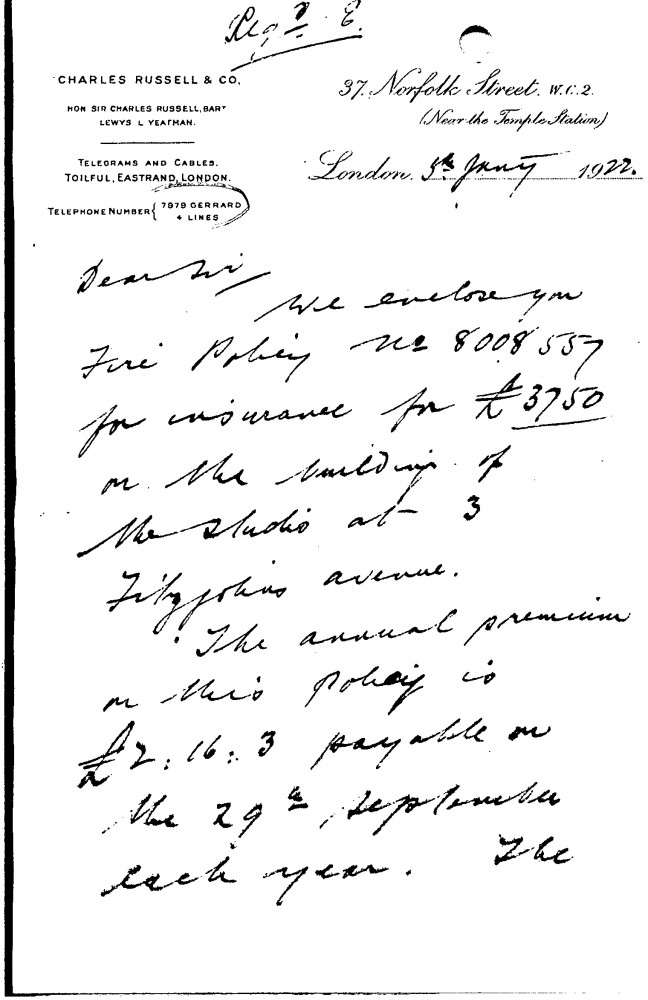 Regd. E.
CHARLES RUSSELL & CO.
HON SIR CHARLES RUSSELL, BART
LEWYS L YEATMAN.
TELEGRAMS AND CABLES.
TOILFUL, EASTRAND, LONDON.
TELEPHONE NUMBER { 7979 GERRARD
4 LINES
37, Norfolk Street, W.C.2.
(Near the Temple Station)
London, 5th Jany 1922.
Dear Sir
We enclose you
Fire Policy No 8008557
for insurance for £3750
on the building of
the studio at 3
Fitzjohns avenue.
The annual premium
on this policy is
£2:16:3 payable on
the 29th September
each year. The